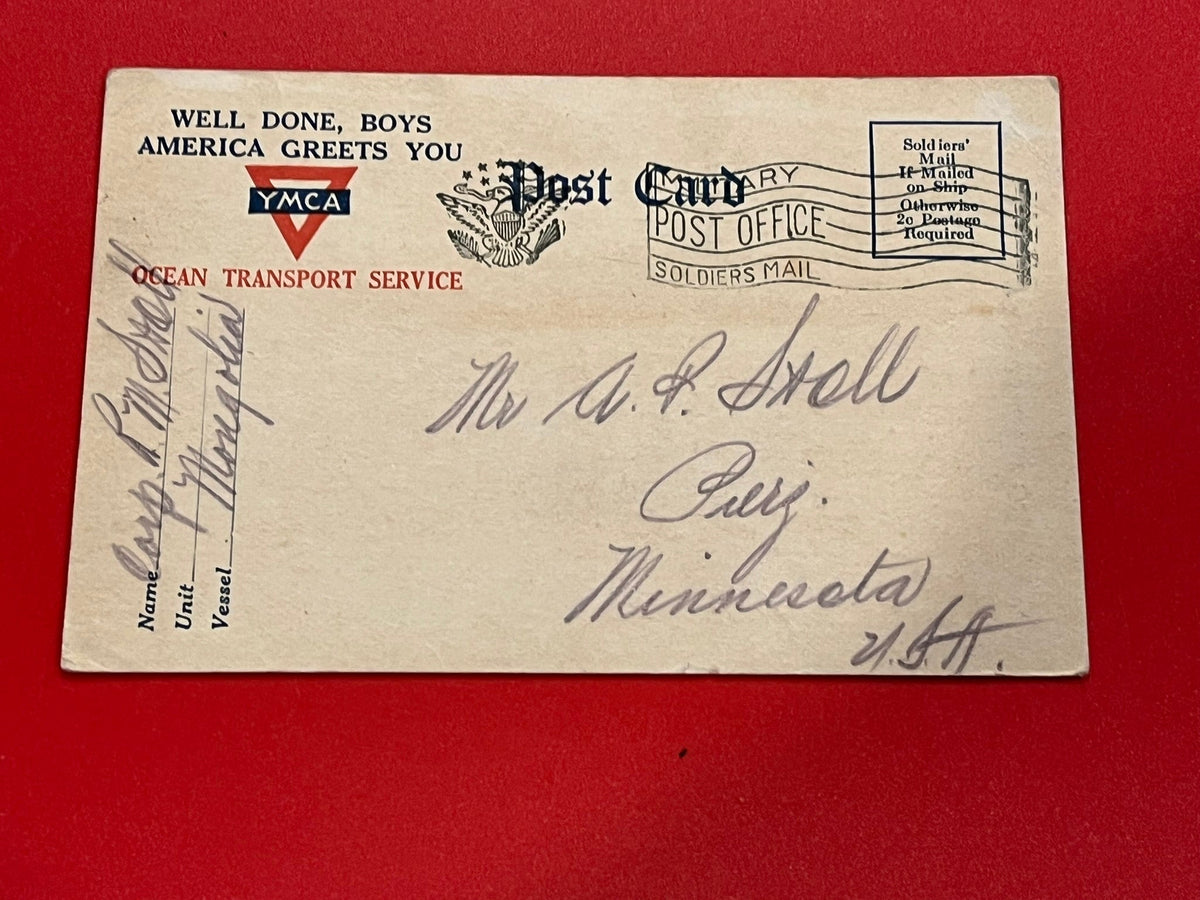 WELL DONE, BOYS
AMERICA GREETS YOU
YMCA
OCEAN TRANSPORT SERVICE
Post Card
MILITARY
POST OFFICE
SOLDIERS MAIL
Soldiers'
Mail
If Mailed
on Ship
Otherwise
2c Postage
Required
Mr A. P. Stoll
Pierz.
Minnesota
U.S.A.
Name Corp. P. M. Stoll
Unit
Vessel Mongolia